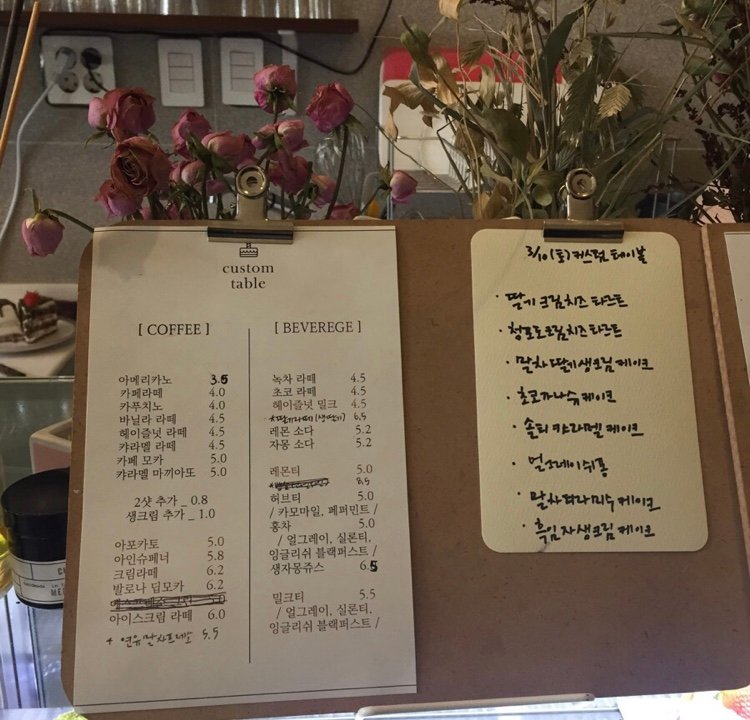 custom
table
[ COFFEE ]
아메리카노 3.5
카페라떼 4.0
카푸치노 4.0
바닐라 라떼 4.5
헤이즐넛 라떼 4.5
캬라멜 라떼 4.5
카페 모카 5.0
캬라멜 마끼아또 5.0
2샷 추가 _ 0.8
생크림 추가 _ 1.0
아포카토 5.0
아인슈페너 5.8
크림라떼 6.2
발로나 딥모카 6.2
아이스크림 라떼 6.0
+ 연유말차프레도 5.5
[ BEVEREGE ]
녹차 라떼 4.5
초코 라떼 4.5
헤이즐넛 밀크 4.5
*딸기라떼 (생딸기) 6.5
레몬 소다 5.2
자몽 소다 5.2
레몬티 5.0
허브티 5.0
/ 카모마일, 페퍼민트 /
홍차 5.0
/ 얼그레이, 실론티,
잉글리쉬 블랙퍼스트 /
생자몽쥬스 6.5
밀크티 5.5
/ 얼그레이, 실론티,
잉글리쉬 블랙퍼스트 /
3/10(토) 커스텀 테이블
· 딸기 크림치즈 타르트
· 청포도크림치즈 타르트
· 말차 딸기 생크림 케이크
· 초코가나슈 케이크
· 솔티 캬라멜 케이크
· 얼그레이 쉬폰
· 말차 티라미수 케이크
· 흑임자 생크림 케이크